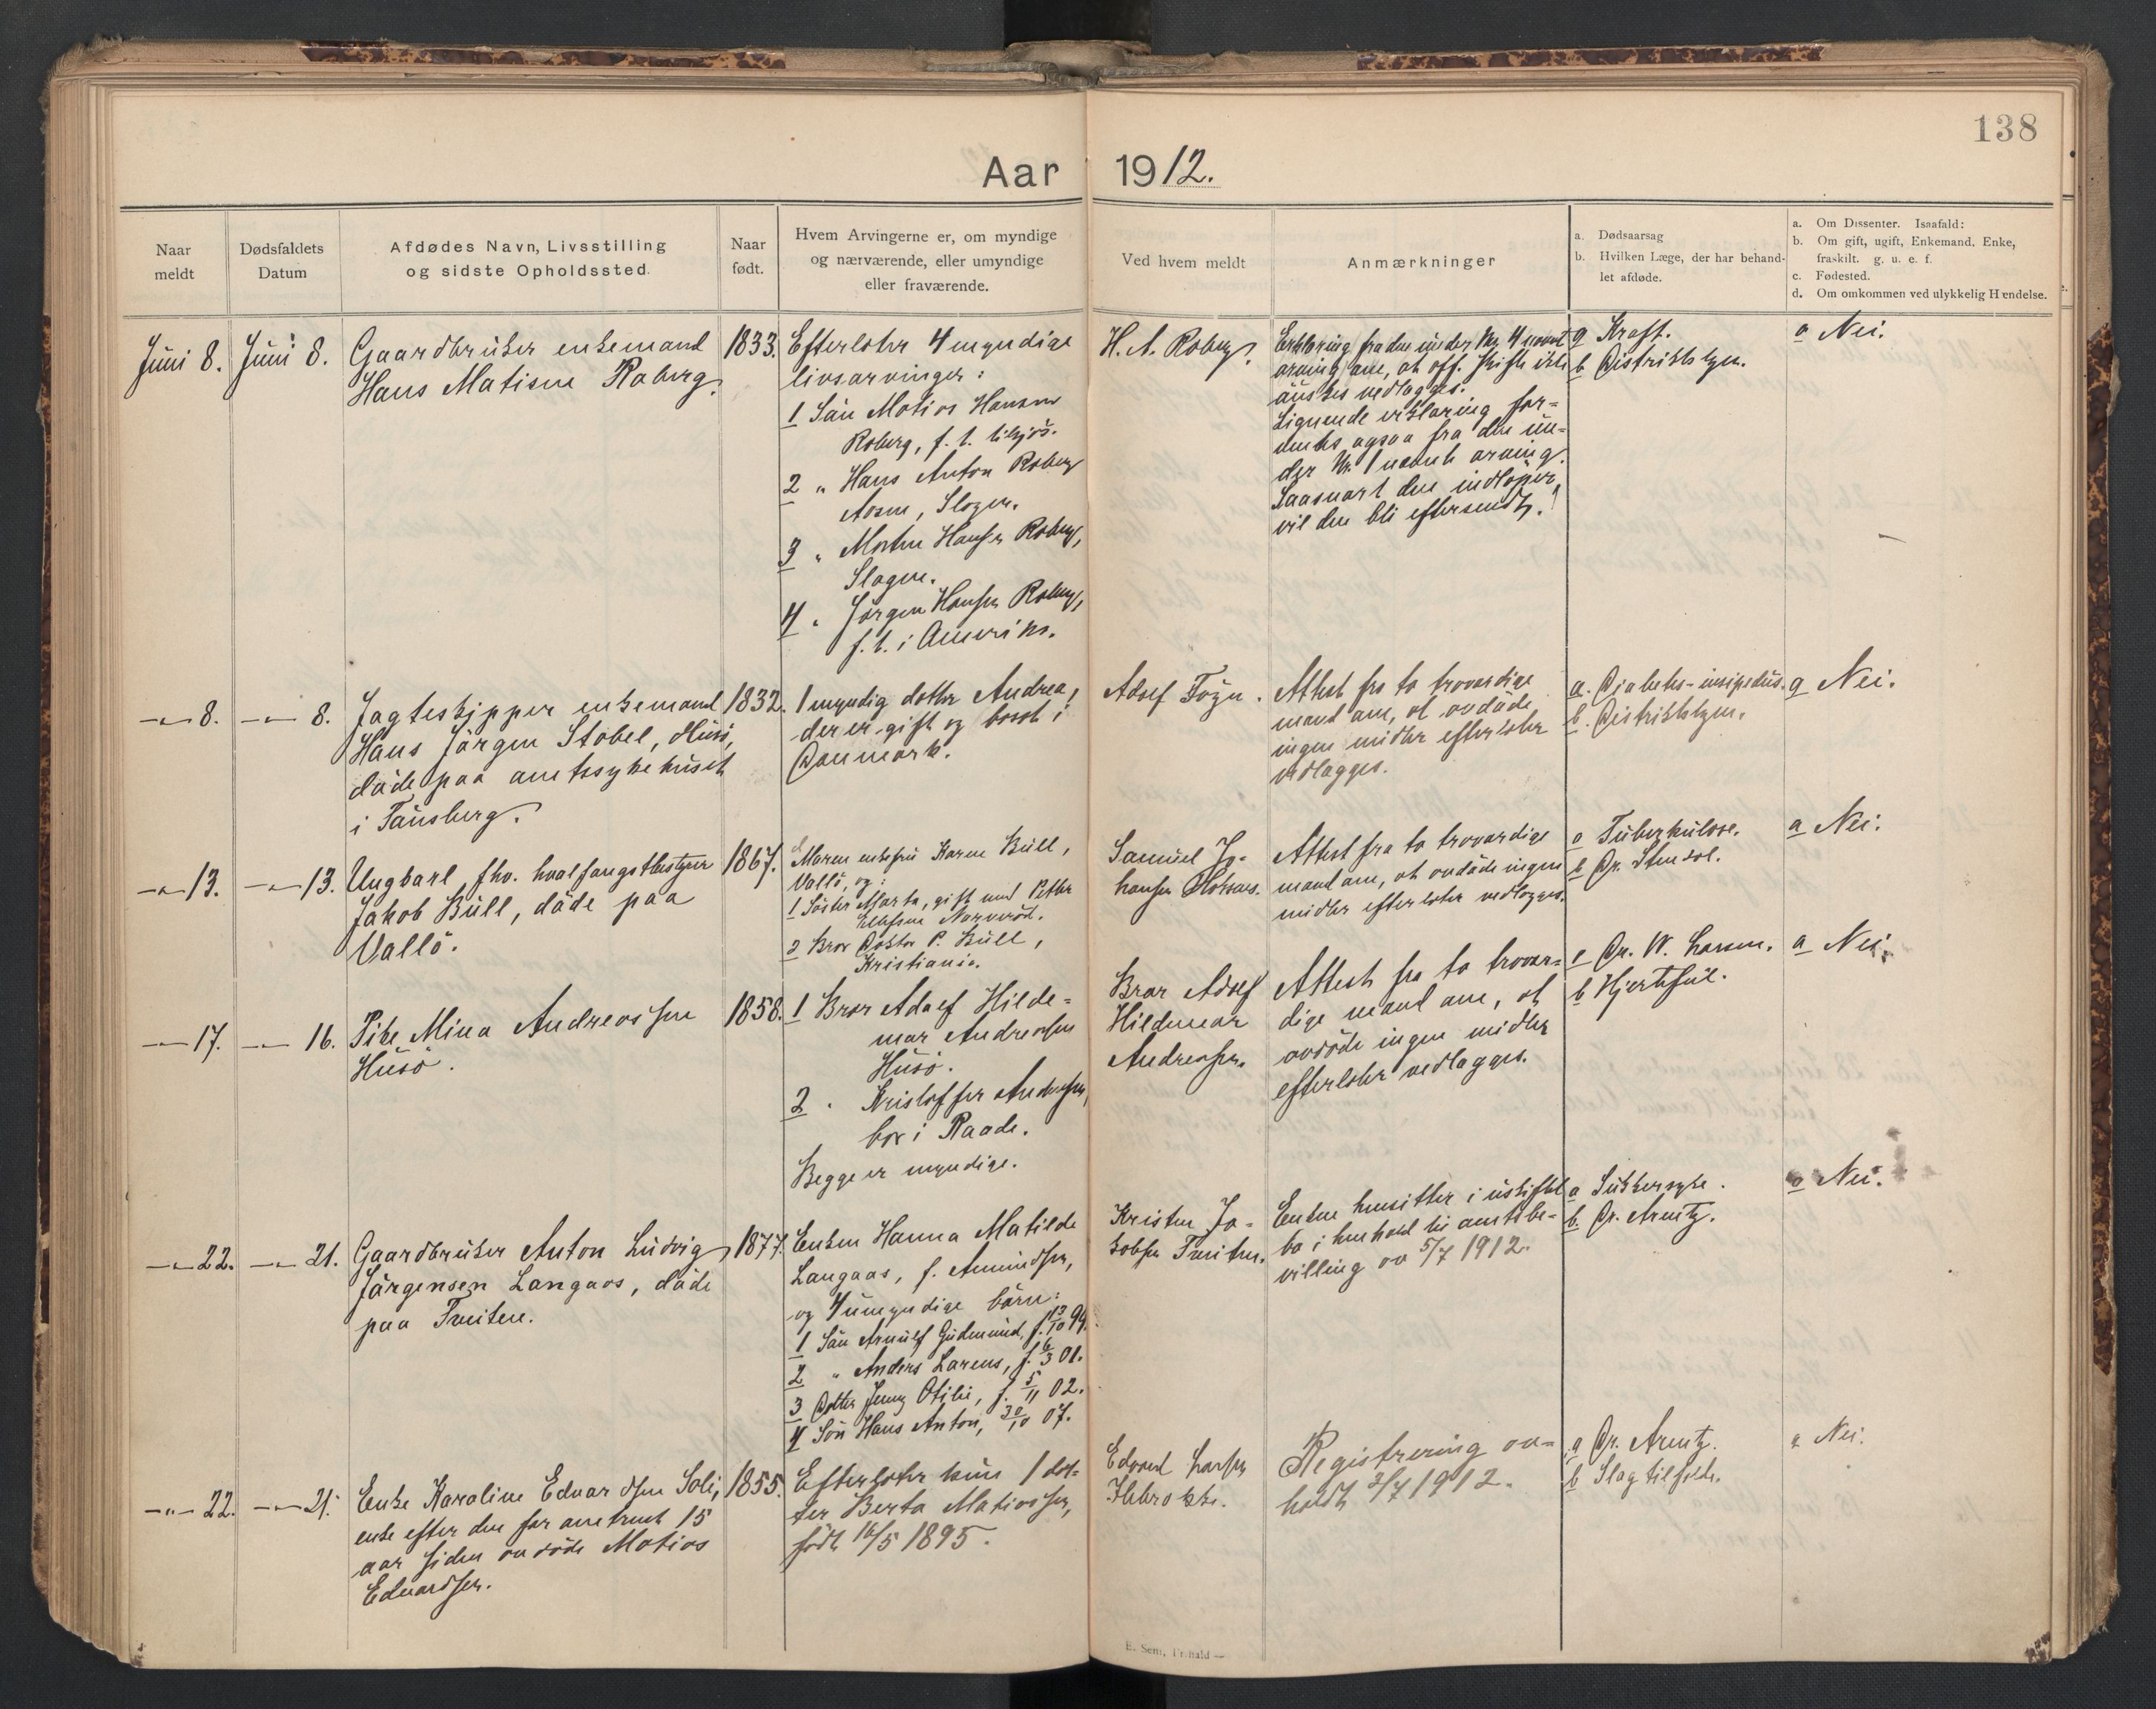 138
Aar 1912.
Naar
meldt
Dødsfaldets
Datum
Afdødes Navn, Livsstilling
og sidste Opholdssted.
Naar
født.
Hvem Arvingerne er, om myndige
og nærværende, eller umyndige
eller fraværende.
Ved hvem meldt
Anmærkninger
a. Dødsaarsag
b. Hvilken Læge, der har behand-
let afdøde.
a. Om Dissenter. Isaafald:
b. Om gift, ugift, Enkemand, Enke,
fraskilt. g. u. e. f.
c. Fødested.
d. Om omkommen ved ulykkelig Hændelse.
Juni 8.
Juni 8.
Gaardbruker enkemand
Hans Matisen Roberg.
1833.
Efterlater 4 myndige
livsarvinger:
1 Sön Matias Hansen
Roberg, f. t. tilsjös.
2 " Hans Anton Roberg
Aasen, Slagen.
3 " Morten Hansen Roberg,
Slagen.
4 " Jörgen Hansen Roberg,
f. t. i Amerika.
H. A. Roberg.
Erklæring fra den under Nr 4 nævnt
arving om, at off. skifte ikke
önskes vedlægges.
Lignende erklæring for-
ventes ogsaa fra den un-
der Nr. 1 nævnte arving.
Saasnart den indlöper,
vil den bli eftersendt.
a Kræft.
b Distriktslægen.
a Nei.
—"— 8.
—"— 8.
Jagteskipper enkemand
Hans Jörgen Stabel, Husö,
döde paa amtssykehuset
i Tönsberg.
1832.
1 myndig datter Andrea,
der er gift og bosat i
Danmark.
Adolf
Attest fra to troværdige
mænd om, at avdöde
ingen midler efterlater
vedlægges.
a. Diabetes-insipidus.
b. Distriktslægen.
a Nei.
—"— 13.
—"— 13.
Ungkarl, fhv. hvalfangstbestyrer
Jakob Bull, döde paa
Vallö.
1867.
Moren enkefru Karen Bull,
Vallö, og:
1 Söster Marta, gift med Petter
Ellefsen Narveröd.
2 Bror Doktor P. Bull,
Kristiania.
Samuel Jo-
hansen
Attest fra to troværdige
mænd om, at avdöde ingen
midler efterlater vedlægges.
a Tuberkulose.
b Dr. Stensol.
a Nei.
—"— 17.
—"— 16.
Pike Mina Andreassen
Husö.
1858.
1 Bror Adolf Hilde-
mar Andreassen
Husö.
2 " Kristoffer Andreassen,
bor i Raade.
Begge er myndige.
Bror Adolf
Hildemar
Andreassen.
Attest fra to trovær-
dige mænd om, at
avdöde ingen midler
efterlater vedlægges.
a Dr. W. Larsen.
b Hjertefeil.
a Nei.
—"— 22.
—"— 21.
Gaardbruker Anton Ludvig
Jörgensen Langaas, döde
paa Tveiten.
1877.
Enken Hanna Matilde
Langaas, f. Amundsen,
og 4 umyndige börn:
1 Sön Arnulf Gudmund, f. 13/10 99.
2 " Anders Larens, f. 6/3 01.
3 Datter Jenny Otilie, f. 5/11 02.
4 Sön Hans Anton, 30/10 07.
Kristen Ja-
kobsen Tveiten.
Enken hensitter i uskiftet
bo i henhold til amtsbe-
villing av 5/7 1912.
a Sukkersyke.
b. Dr. Arentz.
a Nei.
—"— 22.
—"— 21.
Enke Karoline Edvardsen Solli,
enke efter den for omtrent 15
aar siden avdöde Matias
Edvardsen.
1855.
Efterlater kun 1 dat-
ter Berta Matiassen,
född 16/5 1895.
Edvard Larsen
Registrering av-
holdt 2/7 1912.
a Dr. Arentz.
b Slagtilfælde.
a Nei.
E. Sem, Fr.hald —